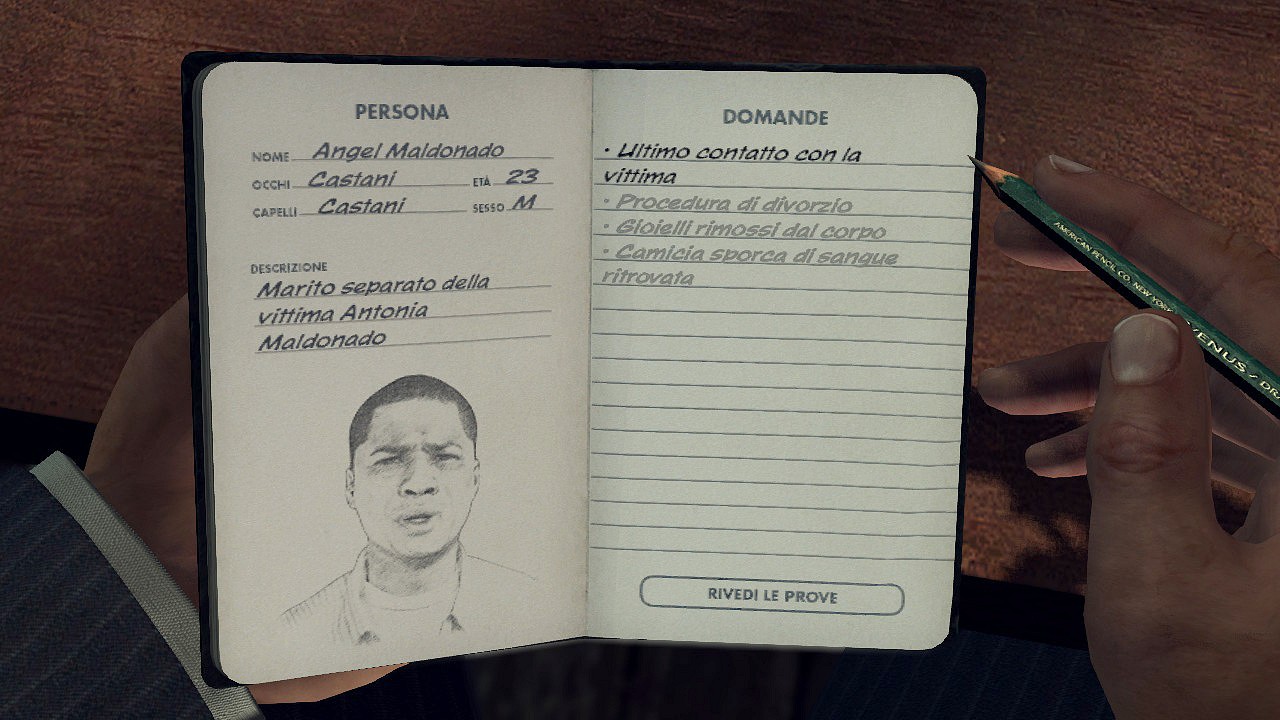 PERSONA
NOME Angel Maldonado
OCCHI Castani ETÀ 23
CAPELLI Castani SESSO M
DESCRIZIONE
Marito separato della
vittima Antonia
Maldonado
DOMANDE
• Ultimo contatto con la
vittima
• Procedura di divorzio
• Gioielli rimossi dal corpo
• Camicia sporca di sangue
ritrovata
RIVEDI LE PROVE
AMERICAN PENCIL CO. NEW YORK
VENUS / DRA